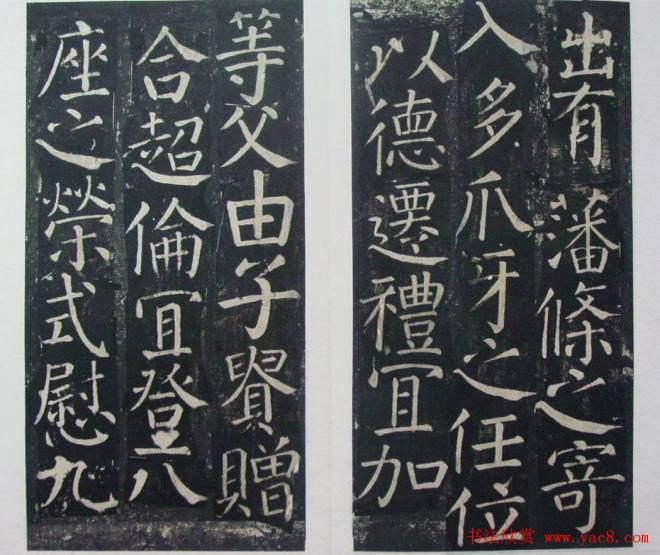 出有藩條之寄
入多爪牙之任位
以德遷禮宜加
等父由子貴贈
合超倫宜登八
座之榮式慰九
书法欣赏 www.yac8.com